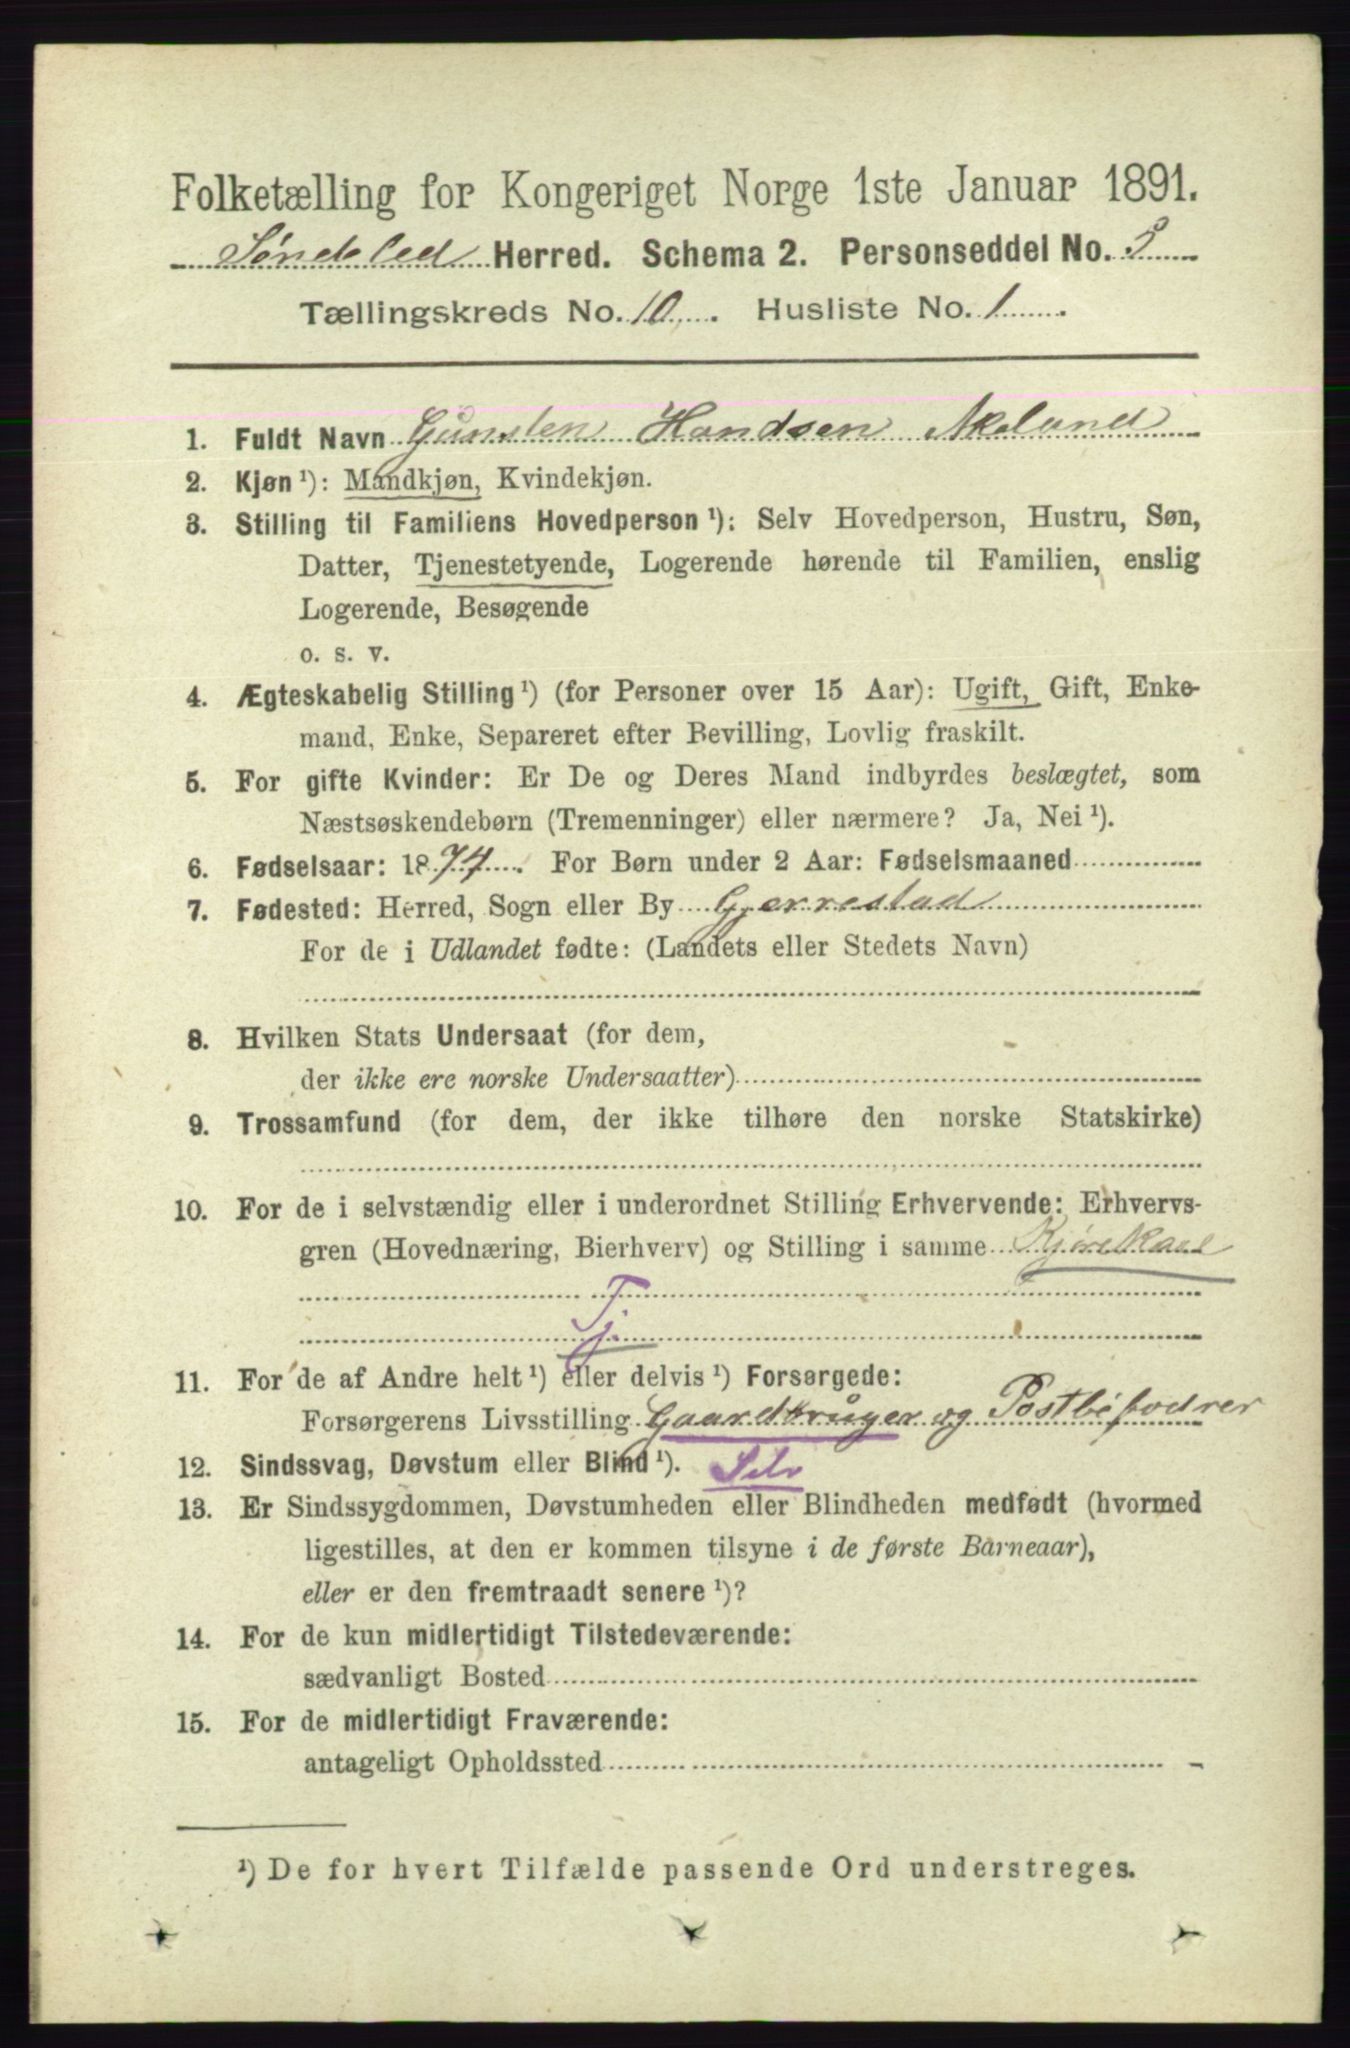 Folketælling for Kongeriget Norge 1ste Januar 1891.
Søndeled Herred. Schema 2. Personseddel No. 5
Tællingskreds No. 10. Husliste No. 1
1. Fuldt Navn Gunsten Handsen Akeland
2. Kjøn ¹): Mandkjøn, Kvindekjøn.
3. Stilling til Familiens Hovedperson ¹): Selv Hovedperson, Hustru, Søn,
Datter, Tjenestetyende, Logerende hørende til Familien, enslig
Logerende, Besøgende
o. s. v.
4. Ægteskabelig Stilling ¹) (for Personer over 15 Aar): Ugift, Gift, Enke-
mand, Enke, Separeret efter Bevilling, Lovlig fraskilt.
5. For gifte Kvinder: Er De og Deres Mand indbyrdes beslægtet, som
Næstsøskendebørn (Tremenninger) eller nærmere? Ja, Nei ¹).
6. Fødselsaar: 1874. For Børn under 2 Aar: Fødselsmaaned
7. Fødested: Herred, Sogn eller By Gjerrestad
For de i Udlandet fødte: (Landets eller Stedets Navn)
8. Hvilken Stats Undersaat (for dem,
der ikke ere norske Undersaatter)
9. Trossamfund (for dem, der ikke tilhøre den norske Statskirke)
10. For de i selvstændig eller i underordnet Stilling Erhvervende: Erhvervs-
gren (Hovednæring, Bierhverv) og Stilling i samme Kjørekarl
Tj.
11. For de af Andre helt ¹) eller delvis ¹) Forsørgede:
Forsørgerens Livsstilling Gaardbruger og Postbefodrer
12. Sindssvag, Døvstum eller Blind ¹). Selv
13. Er Sindssygdommen, Døvstumheden eller Blindheden medfødt (hvormed
ligestilles, at den er kommen tilsyne i de første Barneaar),
eller er den fremtraadt senere ¹)?
14. For de kun midlertidigt Tilstedeværende:
sædvanligt Bosted
15. For de midlertidigt Fraværende:
antageligt Opholdssted
¹) De for hvert Tilfælde passende Ord understreges.